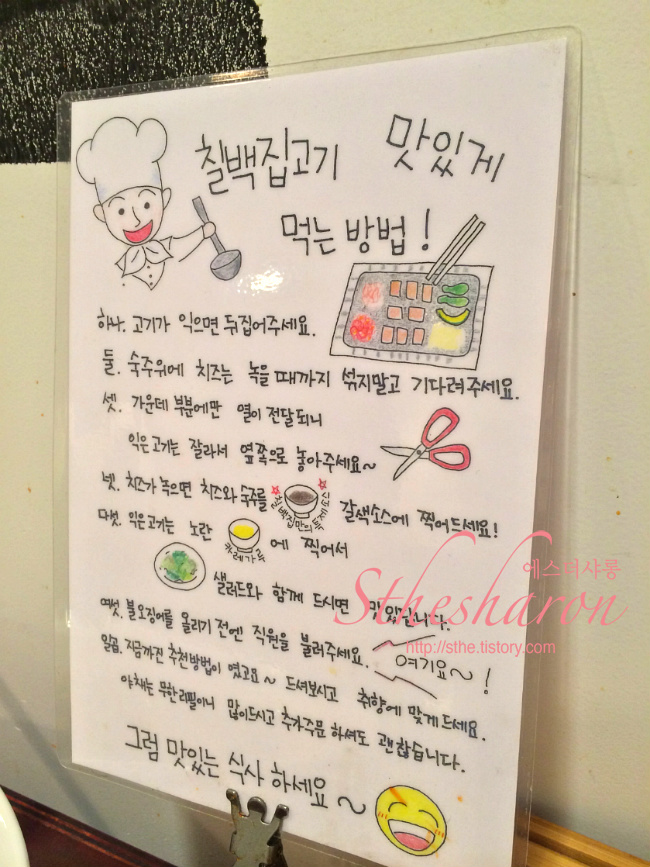 칠백집고기 맛있게
먹는 방법!
하나. 고기가 익으면 뒤집어주세요.
둘. 숙주위에 치즈는 녹을 때까지 섞지말고 기다려주세요.
셋. 가운데 부분에만 열이 전달되니
익은고기는 잘라서 옆쪽으로 놓아주세요~
넷. 치즈가 녹으면 치즈와 숙주를 칠백집만의 특제소스 갈색소스에 찍어드세요!
다섯. 익은고기는 노란 카레가루 에 찍어서
샐러드와 함께 드시면 맛있답니다.
에스더샤롱
Sthesharon
http://sthe.tistory.com
여섯. 불오징어를 올리기 전엔 직원을 불러주세요. 여기요~!
일곱. 지금까진 추천방법이 였고요~ 드셔보시고 취향에 맞게드세요.
야채는 무한리필이니 많이드시고 추가주문 하셔도 괜찮습니다.
그럼 맛있는 식사 하세요~